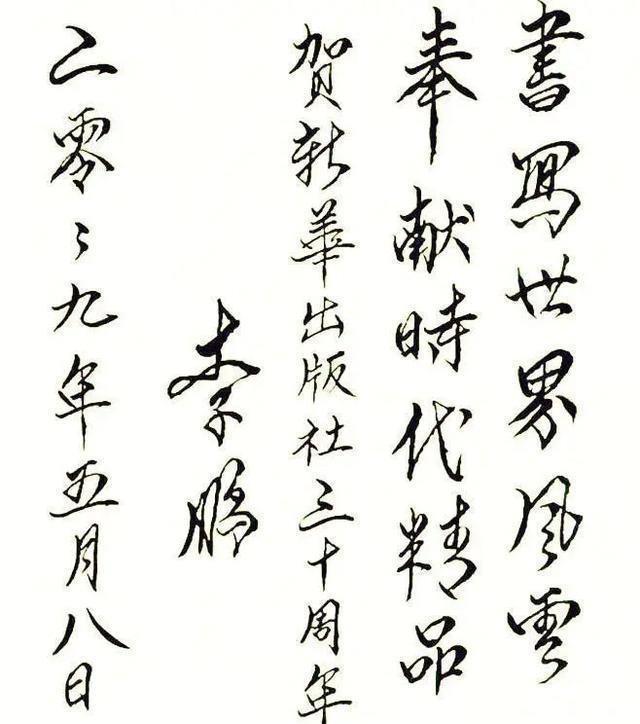 書寫世界風雲
奉献時代精品
賀新華出版社三十周年
李鵬
二零〻九年五月八日